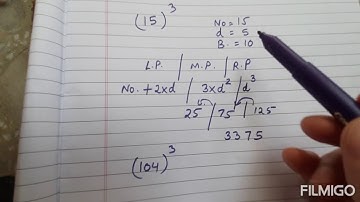 (15)³
No = 15
d = 5
B. = 10
L.P. | M.P. | R.P
No. + 2xd | 3xd² | d³
25 | 75 | 125
3375
(104)³
FILMIGO